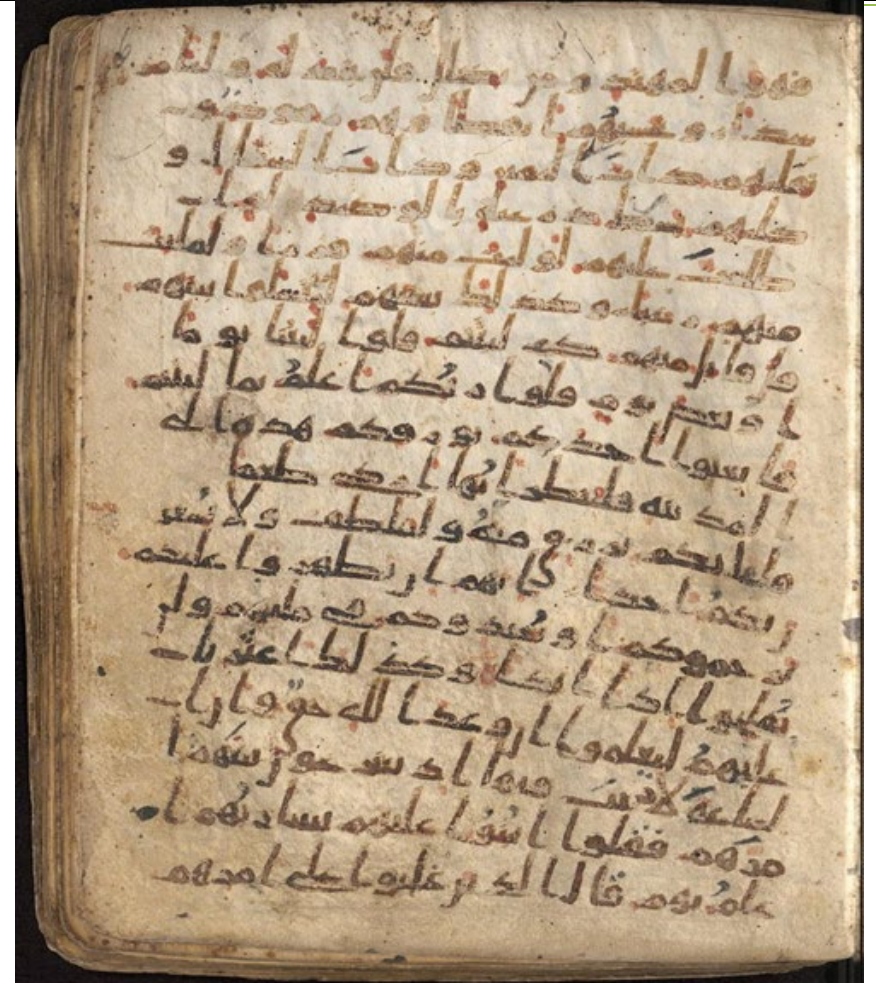 فهو المهتد ومن يضلل فلن تجد له وليا مر
شدا وتحسبهم ايقاظا وهم رقود ونـ
قلبهم ذات اليمين وذات الشمال و
كلبهم بسط ذراعيه بالوصيد لو ا
طلعت عليهم لوليت منهم فرارا ولملئت
منهم رعبا وكذلك بعثنهم ليتسلوا بينهم
قل قايل منهم كم لبثتم قلوا لبثنا يوما
ا وبعض يوم قلوا ربكم اعلم بما لبثتم
فابعثوا احدكم بورقكم هذه الى
ا لمدينه فلينظر ايها ازكى طعما
فلياتكم برزق منه وليتلطف ولا يشعر
ن بكم احدا انهم ان يظهروا عليكم
يرجموكم او يعيدوكم في ملتهم ولن
تفلحوا اذا ابدا وكذلك اعثرنا
عليهم ليعلموا ان وعد الله حق وان ا
لساعة لا ريب فيها اذ يتنزعون بينهم ا
مرهم فقلوا ابنوا عليهم بنينا ربهم ا
علم بهم قال الذين غلبوا على امرهم